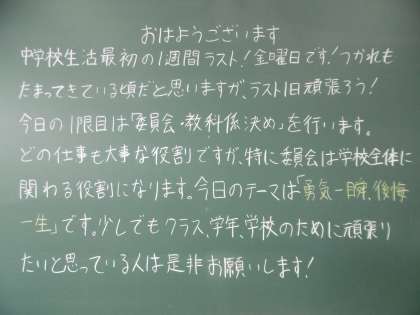 おはようございます
中学校生活最初の1週間ラスト!金曜日です!つかれも
たまってきている頃だと思いますが、ラスト1日頑張ろう!
今日の1限目は「委員会・教科係決め」を行います。
どの仕事も大事な役割ですが、特に委員会は学校全体に
関わる役割になります。今日のテーマは「勇気一瞬、後悔
一生」です。少しでもクラス、学年、学校のために頑張り
たいと思っている人は是非お願いします!